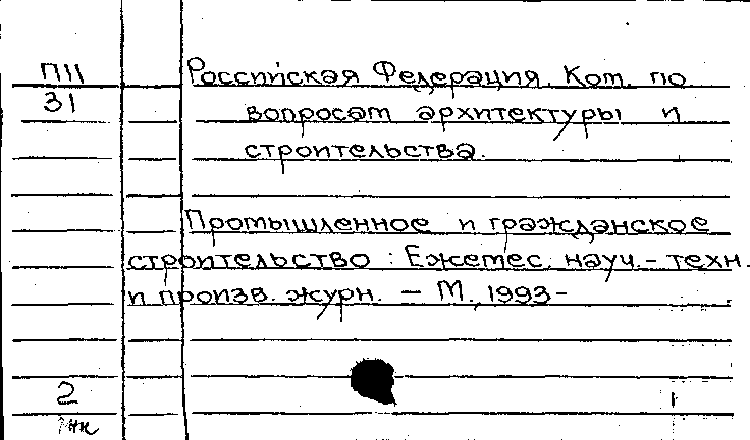 П11
31
Российская Федерация. Ком. по
вопросам архитектуры и
строительства.
Промышленное и гражданское
строительство : Ежемес. науч.- техн.
и произв. журн. — М., 1993-
2